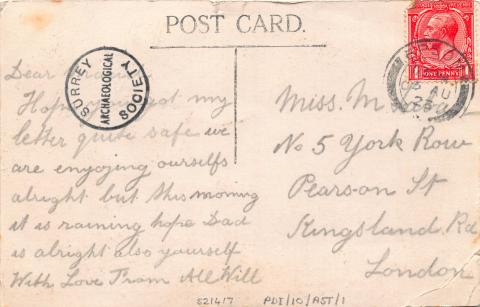 POST CARD.
SURREY ARCHAEOLOGICAL SOCIETY
ONE PENNY
AU
Dear
Hope you got my
letter quite safe we
are engoying ourselfs
alright but this morning
it is raining hope Dad
is alright also yourself
With Love From All Will
Miss. M
No 5 York Row
Pearson St
Kingsland Rd
London
S21417 PDI/10/AST/1